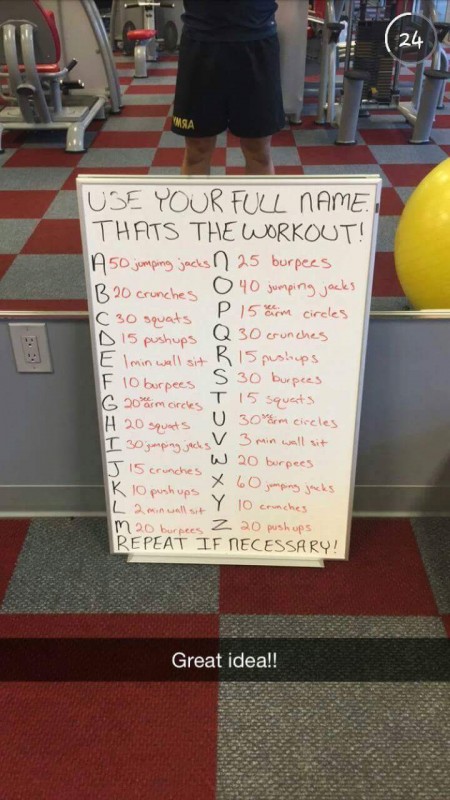 24
ARMY
USE YOUR FULL NAME.
THATS THE WORKOUT!
A 50 jumping jacks
B 20 crunches
C 30 squats
D 15 pushups
E 1 min wall sit
F 10 burpees
G 20 sec arm circles
H 20 squats
I 30 jumping jacks
J 15 crunches
K 10 pushups
L 2 min wall sit
M 20 burpees
N 25 burpees
O 40 jumping jacks
P 15 sec arm circles
Q 30 crunches
R 15 pushups
S 30 burpees
T 15 squats
U 30 sec arm circles
V 3 min wall sit
W 20 burpees
X 60 jumping jacks
Y 10 crunches
Z 20 pushups
REPEAT IF NECESSARY!
Great idea!!